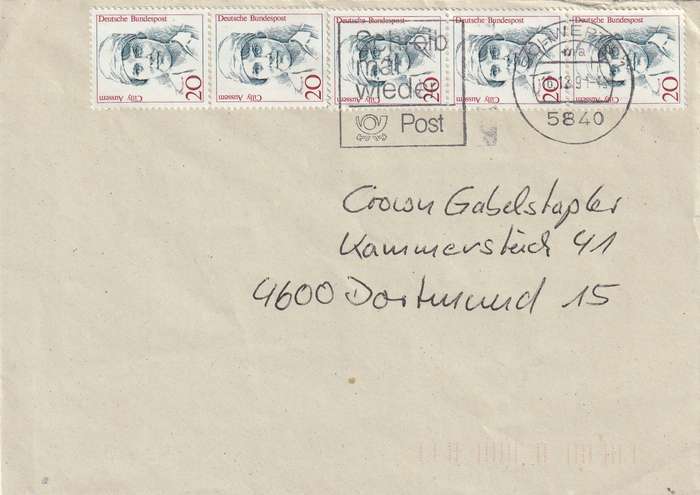 Deutsche Bundespost Deutsche Bundespost Deutsche Bundespost Deutsche Bundespost Deutsche Bundespost
20 20 20 20 20
Cilly Aussem Cilly Aussem Cilly Aussem Cilly Aussem Cilly Aussem
Schreib
mal
wieder
Post
5840
Crown Gabelstapler
Kammerstück 41
4600 Dortmund 15